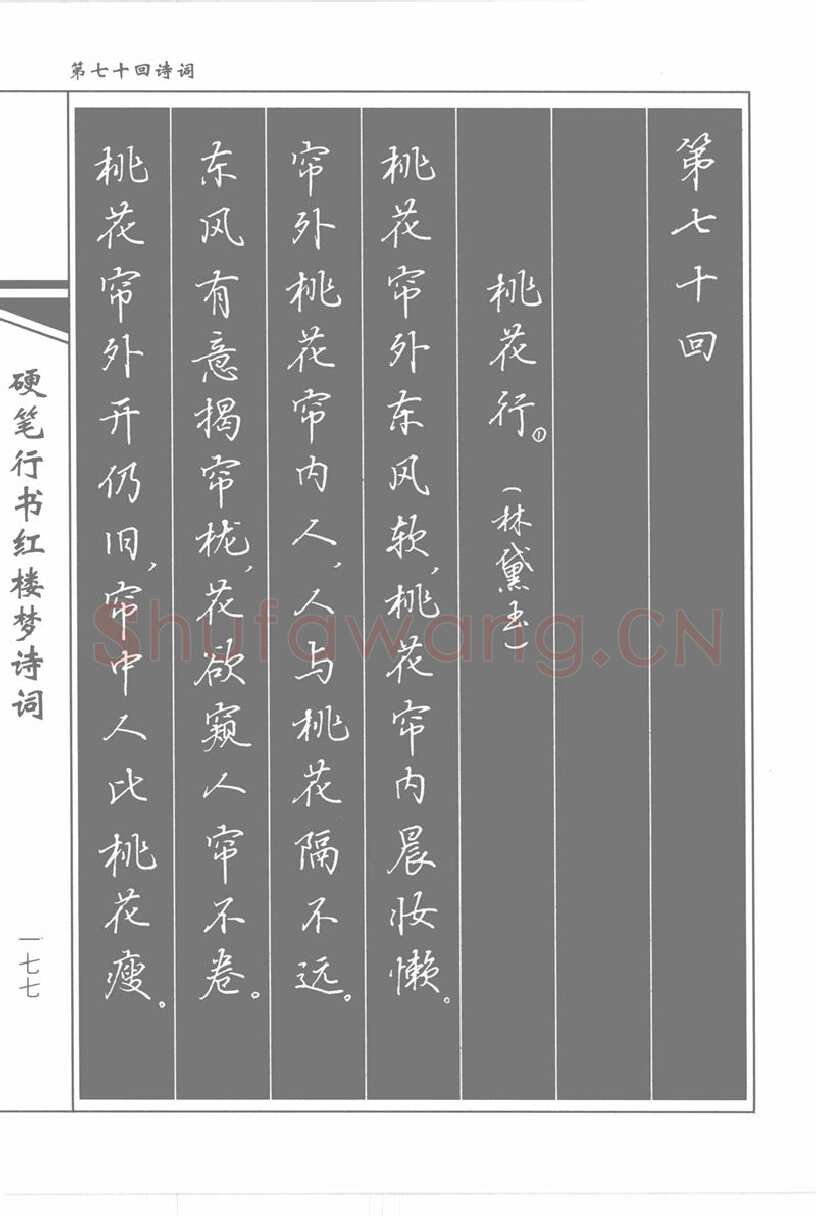 第七十回诗词
第七十回
桃花行。①
（林黛玉）
桃花帘外东风软，桃花帘内晨妆懒。
帘外桃花帘内人，人与桃花隔不远。
东风有意揭帘栊，花欲窥人帘不卷。
桃花帘外开仍旧，帘中人比桃花瘦。
硬笔行书红楼梦诗词
一七七
Shufawang.CN